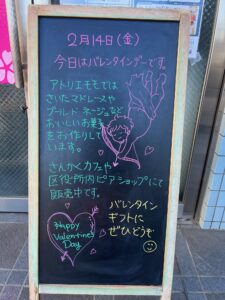 2月14日(金)
今日はバレンタインデーです。
アトリエモモでは
さいたマドレーヌや
ブールドネージュなど
おいしいお菓子
をお作りしてい
います。
さんかくカフェや
区役所内ピアショップにて
販売中です。
バレンタイン
ギフトに
ぜひどうぞ
Happy
Valentine's
Day